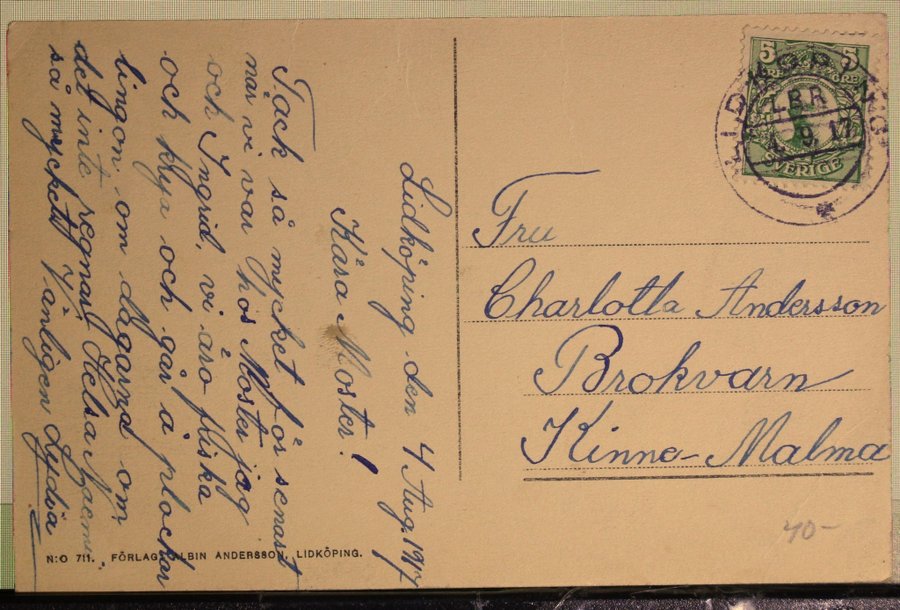 Lidköping den 4 Aug. 1917
Kära Moster!
Tack så mycket för senast
när vi var hos Moster jag
och Ingrid. vi äro friska
och krya och går å plockar
lingon om dagarna om
det inte regnar. Helsa
så mycket Vänligen Lydia
N:O 711. FÖRLAG: ALBIN ANDERSSON, LIDKÖPING.
5 5
ÖRE ÖRE
SVERIGE
LIDKÖPING
LBR
4. 9. 17
Fru
Charlotta Andersson
Brokvarn
Kinne-Malma
40-